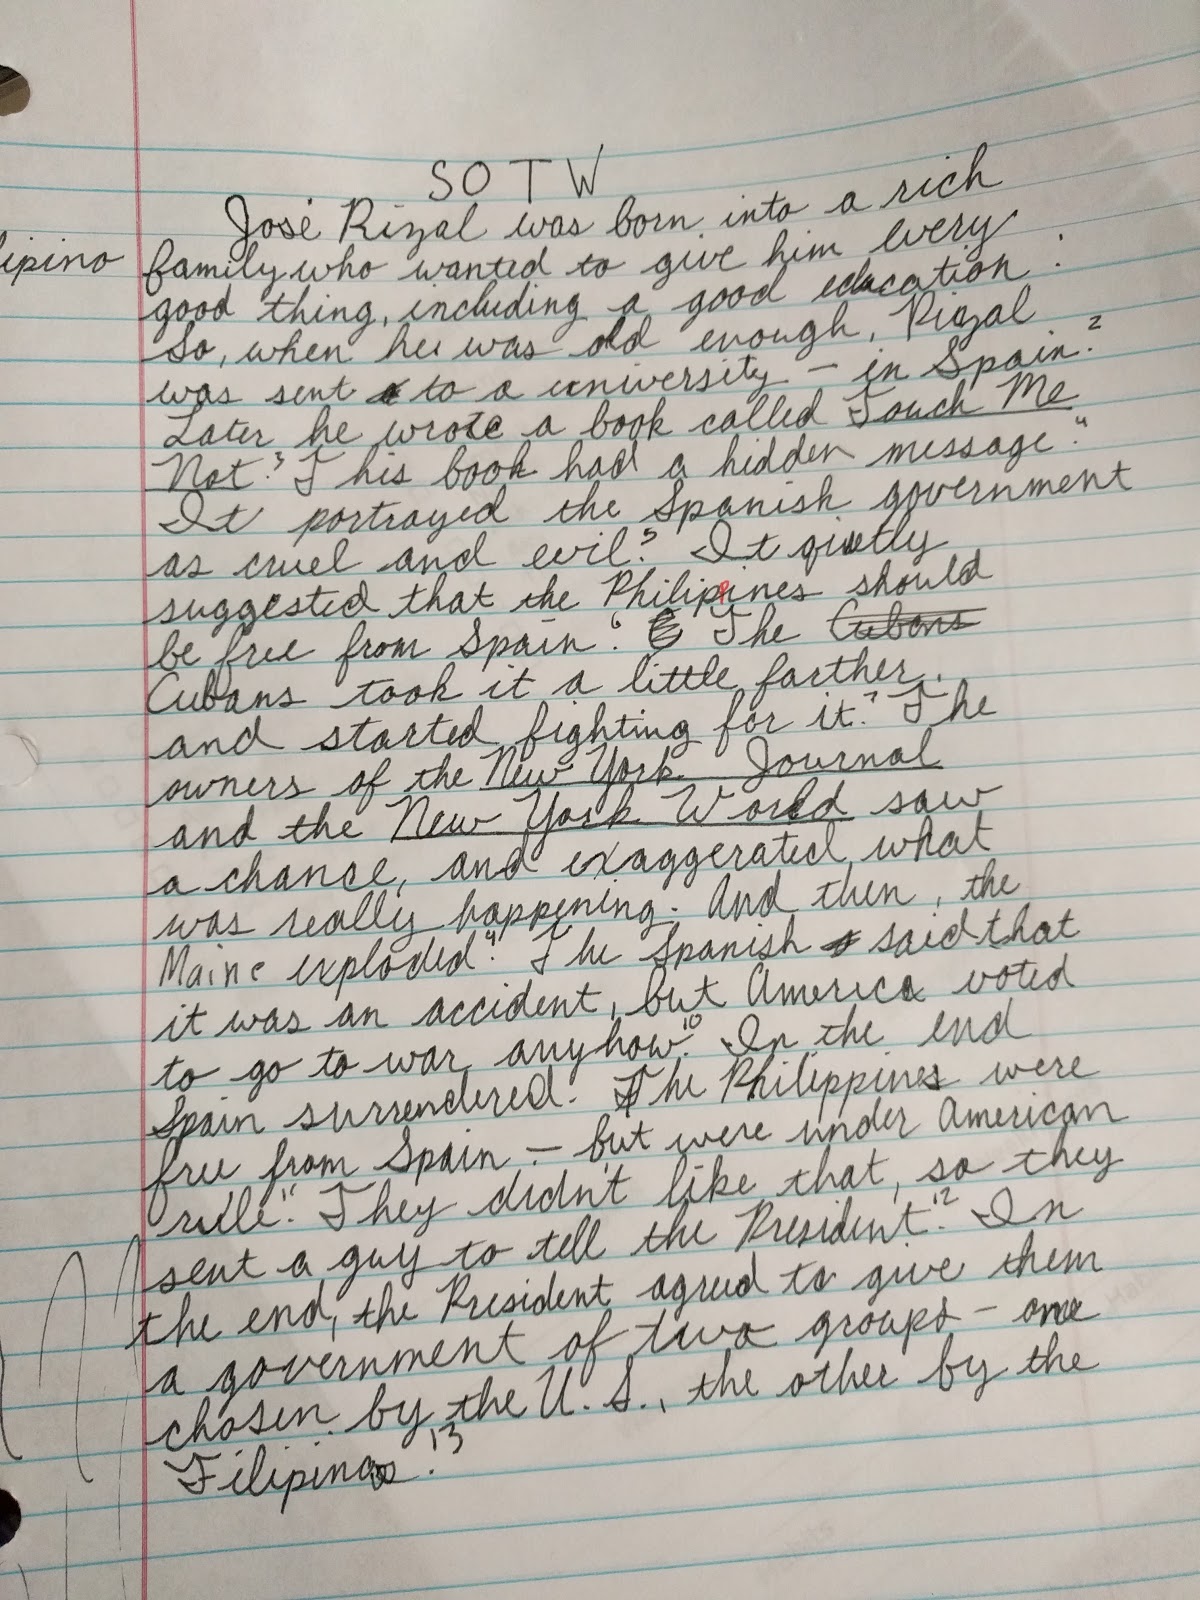 SOTW
José Rizal was born into a rich
ipino family who wanted to give him every
good thing, including a good education.
So, when he was old enough, Rizal
was sent to a university – in Spain.²
Later he wrote a book called Touch Me
Not.³ This book had a hidden message.⁴
It portrayed the Spanish government
as cruel and evil.⁵ It quietly
suggested that the Philippines should
be free from Spain.⁶ The Cubans
Cubans took it a little farther,
and started fighting for it.⁷ The
owners of the New York Journal
and the New York World saw
a chance, and exaggerated what
was really happening. And then, the
Maine exploded.⁹ The Spanish said that
it was an accident, but America voted
to go to war anyhow.¹⁰ In the end
Spain surrendered. The Philippines were
free from Spain – but were under American
rule.¹¹ They didn't like that, so they
sent a guy to tell the President.¹² In
the end, the President agreed to give them
a government of two groups – one
chosen by the U.S., the other by the
Filipinos.¹³